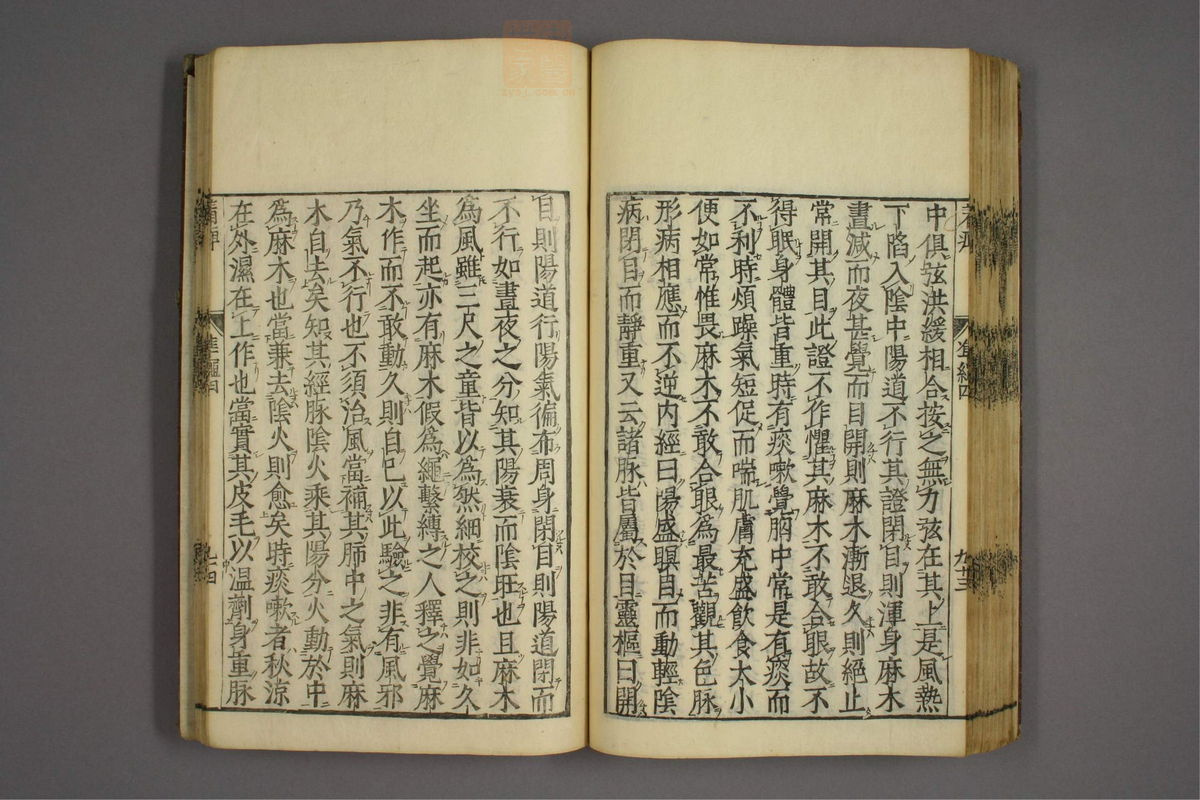 中俱弦洪緩相合按之無力弦在其上是風熱
下陷入陰中陽道不行其證閉目則渾身麻木
晝減而夜甚覺而目開則麻木漸退久則絕止
常開其目此證不作懼其麻木不敢合眼故不
得眠身體皆重時有痰嗽覺胸中常是有痰而
不利時煩躁氣短促而喘肌膚充盛飲食大小
便如常惟畏麻木不敢合眼為最苦觀其色脉
形病相應而不逆内經曰陽盛瞑目而動輕陰
病閉目而靜重又云諸脉皆屬於目靈樞曰開
目則陽道行陽氣徧布周身閉目則陽道閉而
不行如晝夜之分知其陽衰而陰旺也且麻木
為風雖三尺之童皆以為然細校之則非如久
坐而起亦有麻木假為繩繫縛之人釋之覺麻
木作而不敢動久則自已以此驗之非有風邪
乃氣不行也不須治風當補其肺中之氣則麻
木自去矣知其經脉陰火乘其陽分火動於中
為麻木也當兼去陰火則愈矣時痰嗽者秋涼
在外濕在上作也當實其皮毛以温劑身重脉